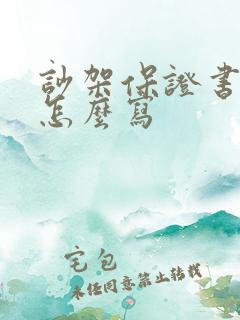 訬架保證書
怎麼寫
宅包
未經同意禁止轉載